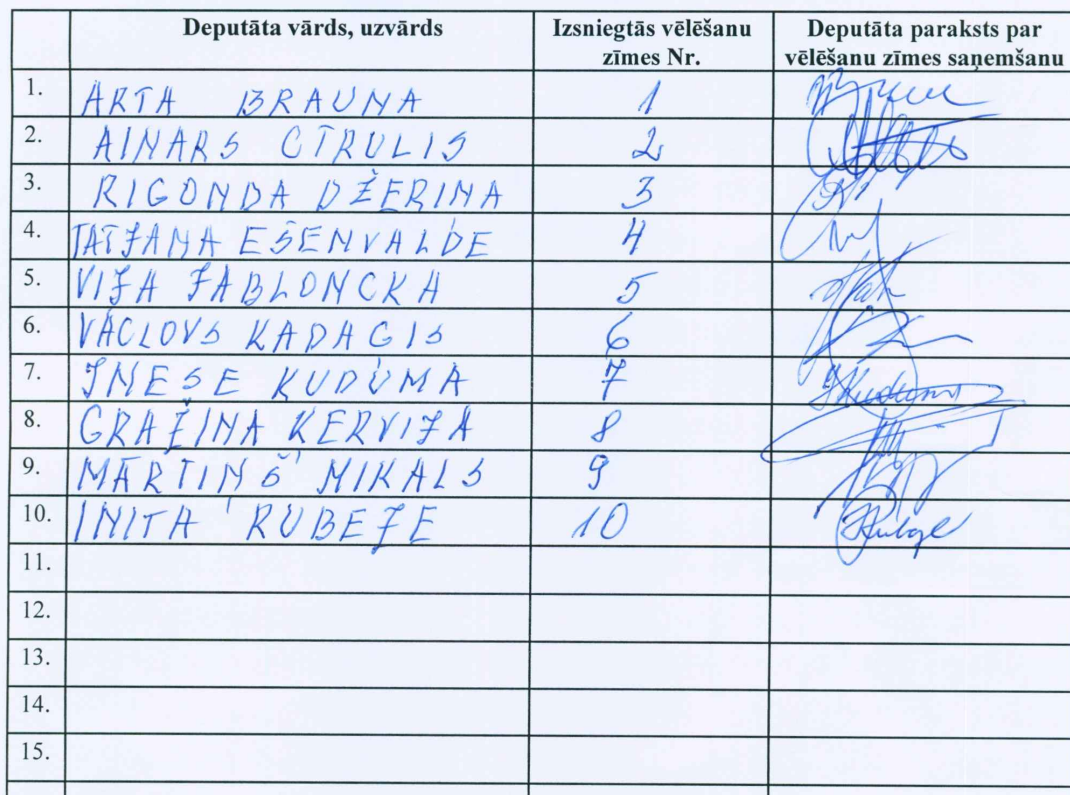 Deputāta vārds, uzvārds Izsniegtās vēlēšanu zīmes Nr. Deputāta paraksts par vēlēšanu zīmes saņemšanu
1. ARTA BRAUNA 1
2. AINARS CĪRULIS 2
3. RIGONDA DŽERIŅA 3
4. TATJANA EŠENVALDE 4
5. VIJA JABLONCKA 5
6. VACLOVS KADAĢIS 6
7. INESE ĶUDŪMA 7 IKuduma
8. GRAŽINA ĶERVIJA 8
9. MĀRTIŅŠ MIKALS 9
10. INITA RUBEŽE 10
11.
12.
13.
14.
15.